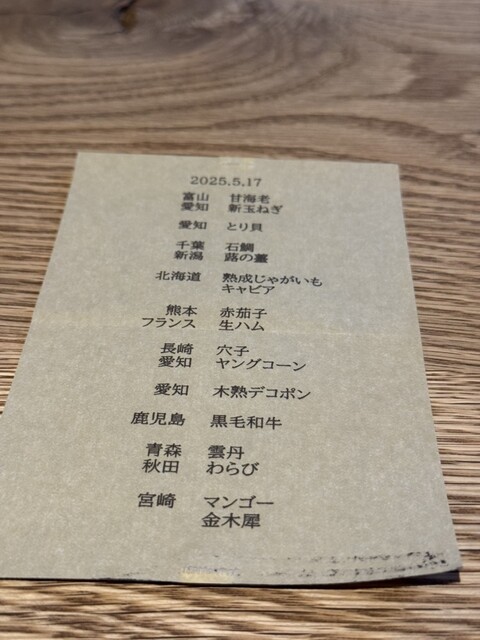 2025.5.17
富山 甘海老
愛知 新玉ねぎ
愛知 とり貝
千葉 石鯛
新潟 蕗の薹
北海道 熟成じゃがいも
キャビア
熊本 赤茄子
フランス 生ハム
長崎 穴子
愛知 ヤングコーン
愛知 木熟デコポン
鹿児島 黒毛和牛
青森 雲丹
秋田 わらび
宮崎 マンゴー
金木犀